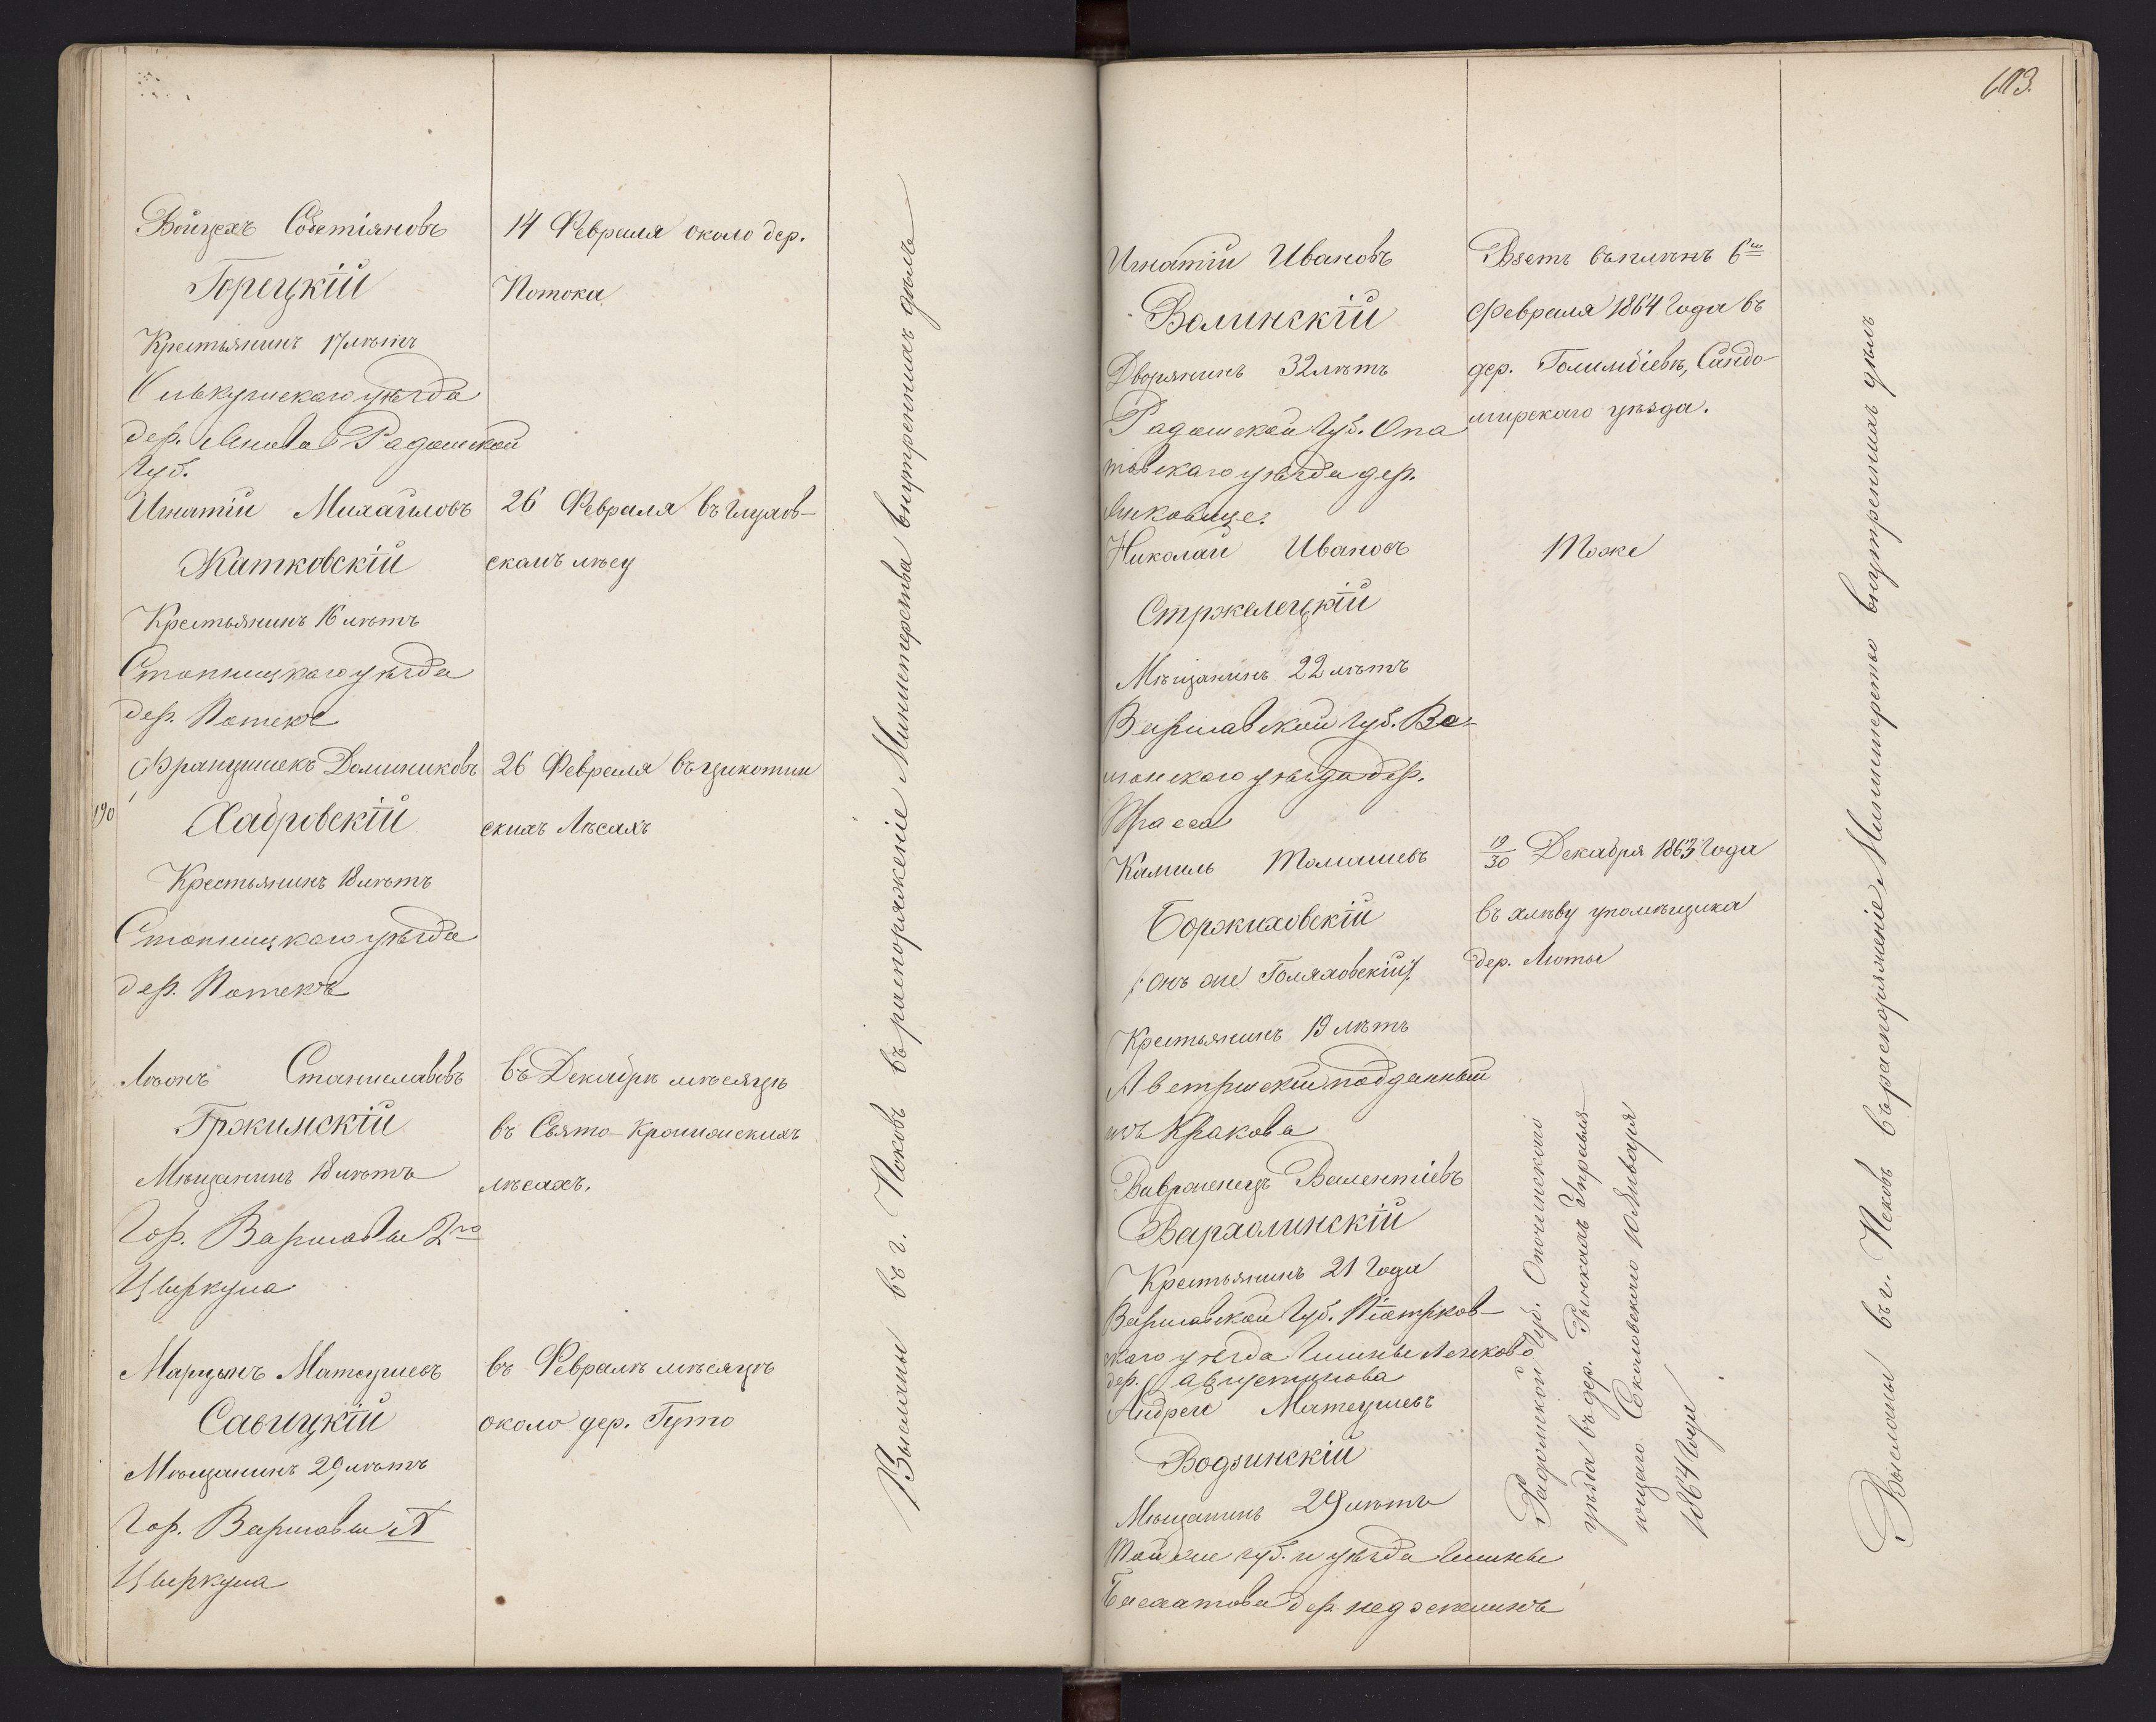 Войцехъ Собетіяновъ
Горецкій
Крестьянинъ 17 лѣтъ
Олькушскаго уѣзда
дер. Янова Радомской
Губ.
14 Февраля около дер.
Потока
Игнатій Михайловъ
Жатковскій
Крестьянинъ 16 лѣтъ
Стопницкаго уѣзда
дер. Потекъ
26 Февраля въ глухов-
скомъ лѣсу
Францишекъ Доминиковъ
190
Хабровскій
Крестьянинъ 18 лѣтъ
Стопницкаго уѣзда
дер. Потекъ
26 Февраля въ цикотин
скихъ Лѣсахъ
Леонъ Станиславовъ
Гржимскій
Мѣщанинъ 18 лѣтъ
Гор. Варшавы 2го
Циркула
въ Декабрѣ мѣсяцѣ
въ Свято-
лѣсахъ.
Марцынъ Матеушевъ
Савицкій
Мѣщанинъ 29 лѣтъ
Гор. Варшавы
Циркула
въ Февралѣ мѣсяцѣ
около дер. Гуто
Высланы въ г. Псковъ въ распоряженіе Министерства внутреннихъ дѣлъ
Игнатій Ивановъ
Волинскій
Дворянинъ 32 лѣтъ
Радомской Губ. Опа
товскаго уѣзда дер.
Взетъ въ плѣнъ 6го
Февраля 1864 года въ
дер. Сандо-
мирскаго уѣзда.
Николай Ивановъ
Стржелецкій
Мѣщанинъ 22 лѣтъ
Варшавской губ. Во-
уѣзда дер.
Тоже
Камиль Томашевъ
Боржиховскій
/: онъ же Голяховскій :/
Крестьянинъ 19 лѣтъ
Австрійскій подданный
изъ Кракова
19/30 Декабря 1863 года
въ хлѣву у помѣщика
дер. Люты
Ваврженецъ Валентіевъ
Вархолинскій
Крестьянинъ 21 Года
Варшавской Губ. Піотрков-
скаго уѣзда Гмины Ленково
дер. Августинова
Андрей Матеушевъ
Водзинскій
Мѣщанинъ 29 лѣтъ
Той же губ. и уѣзда Гмины
Белхатова дер.
Радомской Губ. Опочинскаго
уѣзда въ дер. Управля-
ющаго Соколовскаго 10 Января
1864 года
Высланы въ г. Псковъ въ распоряженіе Министерство внутреннихъ дѣлъ